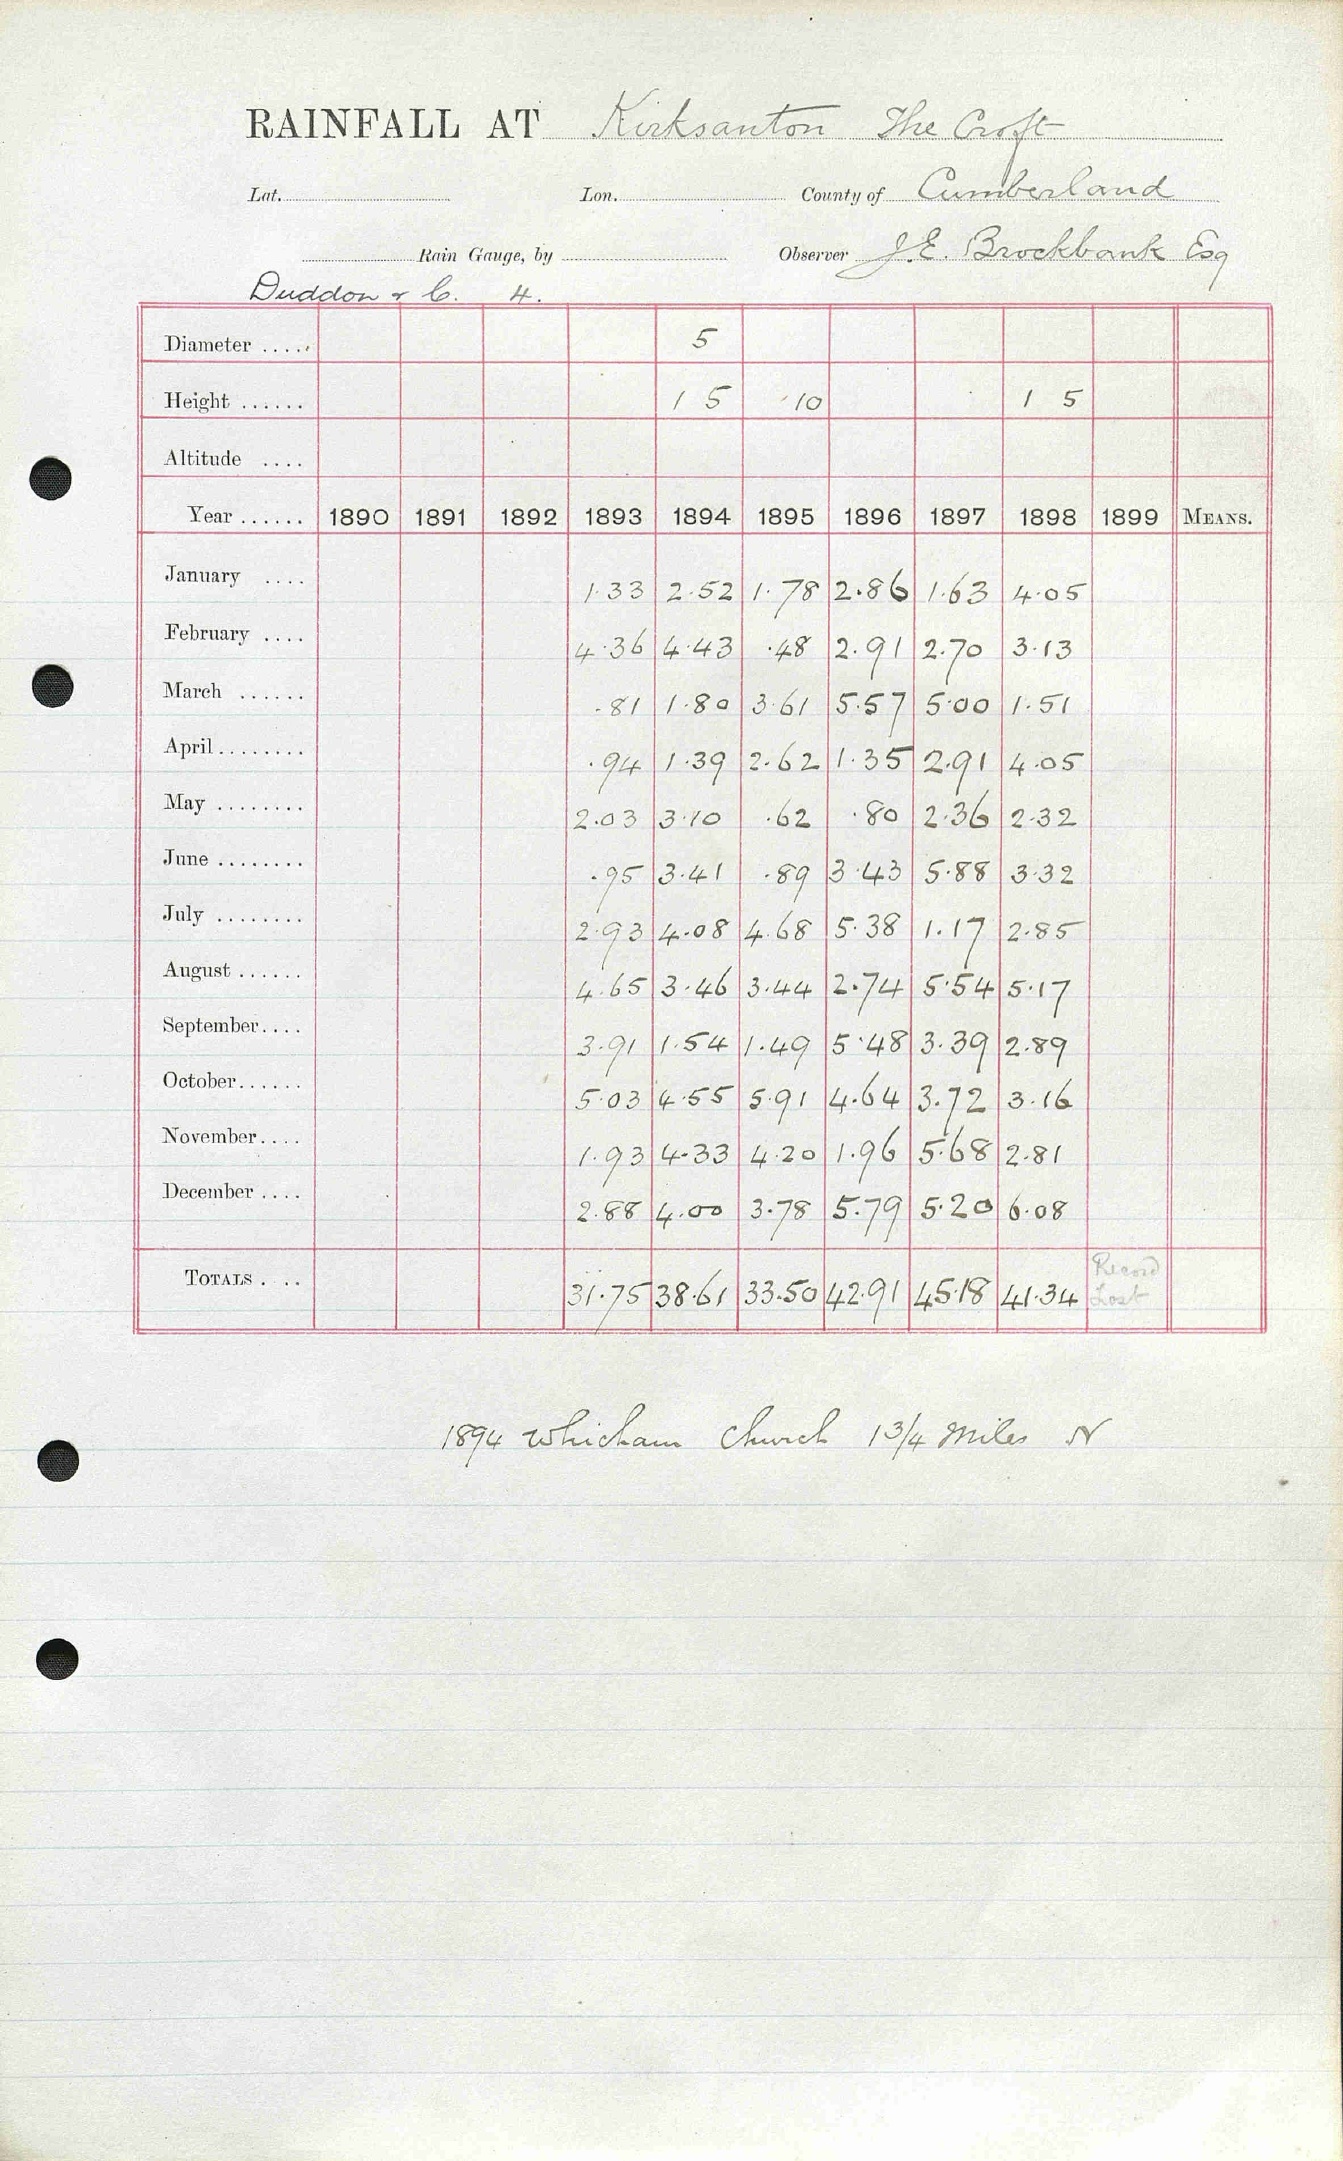 RAINFALL AT Kirksanton The Croft
Lat. Lon. County of Cumberland
Rain Gauge, by Observer J.E. Brockbank Esq
Duddon & C. 4.
Diameter .... 5
Height ...... 1 5 10 1 5
Altitude ....
Year ...... 1890 1891 1892 1893 1894 1895 1896 1897 1898 1899 MEANS.
January .... 1.33 2.52 1.78 2.86 1.63 4.05
February .... 4.36 4.43 .48 2.91 2.70 3.13
March ...... .81 1.80 3.61 5.57 5.00 1.51
April ........ .94 1.39 2.62 1.35 2.91 4.05
May ........ 2.03 3.10 .62 .80 2.36 2.32
June ........ .95 3.41 .89 3.43 5.88 3.32
July ........ 2.93 4.08 4.68 5.38 1.17 2.85
August ...... 4.65 3.46 3.44 2.74 5.54 5.17
September.... 3.91 1.54 1.49 5.48 3.39 2.89
October...... 5.03 4.55 5.91 4.64 3.72 3.16
November.... 1.93 4.33 4.20 1.96 5.68 2.81
December .... 2.88 4.00 3.78 5.79 5.20 6.08
TOTALS . .. 31.75 38.61 33.50 42.91 45.18 41.34 Record Lost
1894 Whicham Church 1 3/4 Miles N